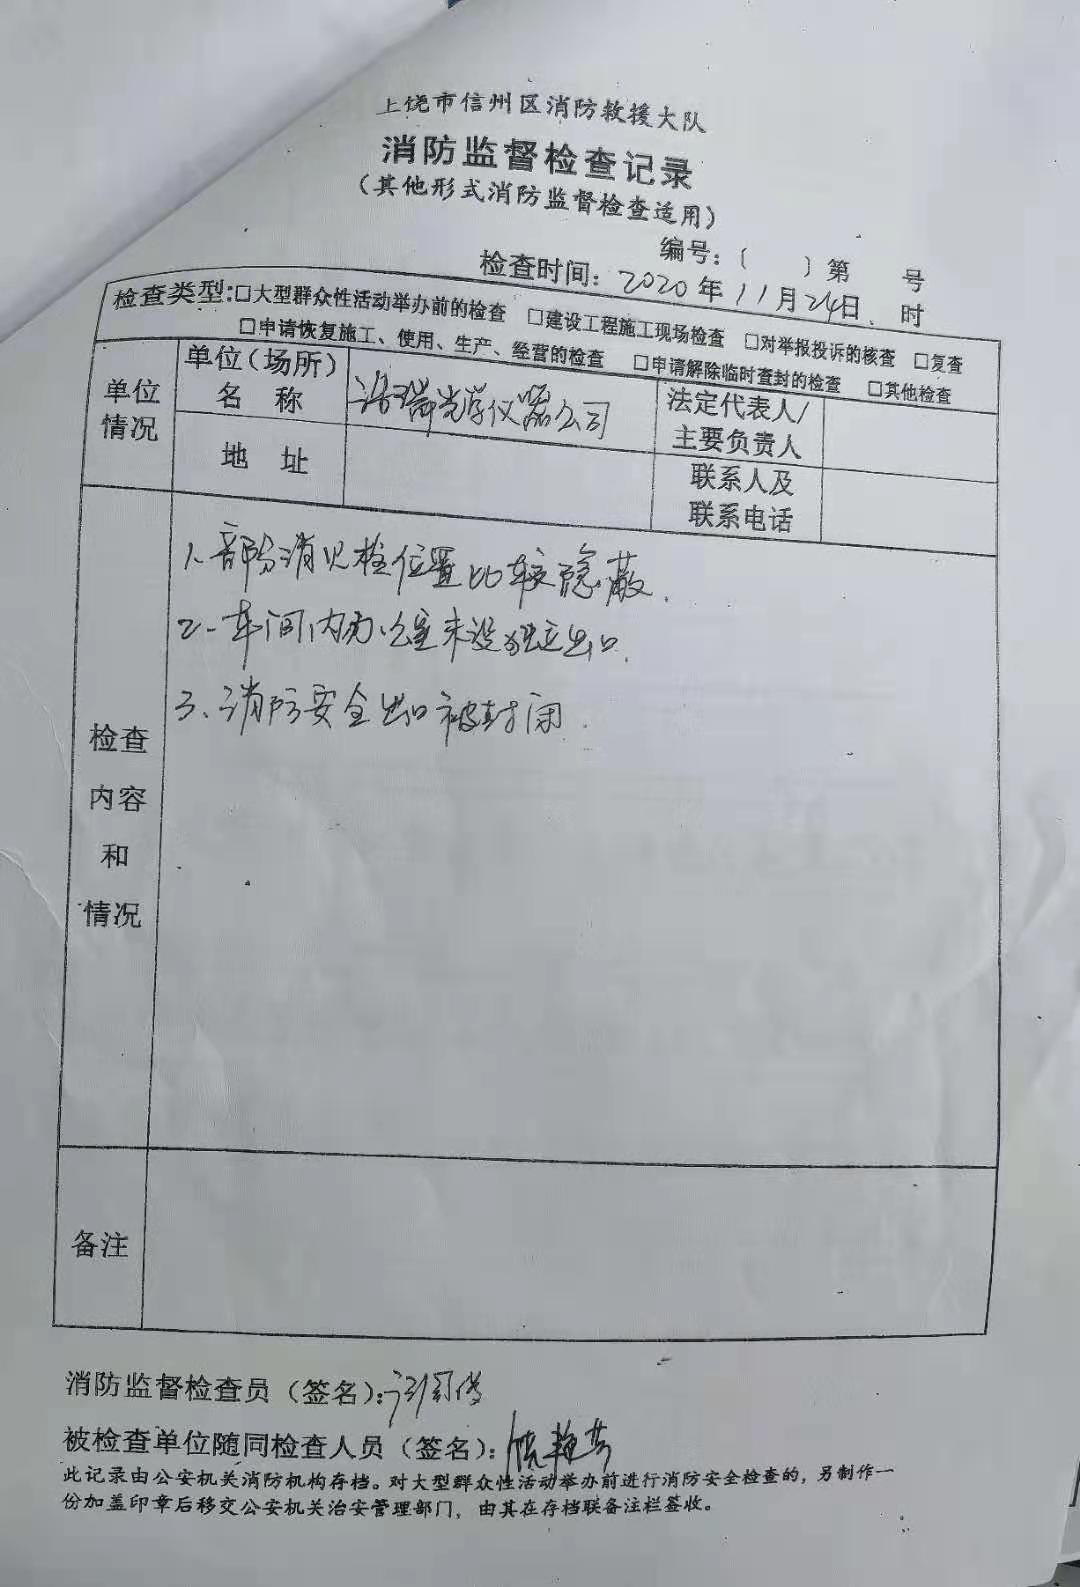 上饶市信州区消防救援大队
消防监督检查记录
（其他形式消防监督检查适用）
编号：〔 〕第 号
检查时间：2020年11月24日 时
检查类型：□大型群众性活动举办前的检查 □建设工程施工现场检查 □对举报投诉的核查 □复查
□申请恢复施工、使用、生产、经营的检查 □申请解除临时查封的检查 □其他检查
单位情况
单位（场所）名称
浩瑞光学仪器公司
法定代表人/主要负责人
地址
联系人及联系电话
检查内容和情况
1.部分消火栓位置比较隐蔽.
2.车间内办公室未设独立出口.
3.消防安全出口被封闭.
备注
消防监督检查员（签名）：
被检查单位随同检查人员（签名）：
此记录由公安机关消防机构存档。对大型群众性活动举办前进行消防安全检查的，另制作一
份加盖印章后移交公安机关治安管理部门，由其在存档联备注栏签收。